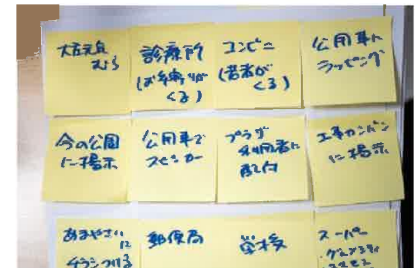 診療所
(お年寄りが
くる)
コンビニ
(若者が
くる)
公用車に
ラッピング
今の公園
に掲示
公用車で
スピーカー
プラザ
利用者に
配付
工事カンバン
に掲示
あまやさい
に
チラシつける
郵便局
学校
スーパー